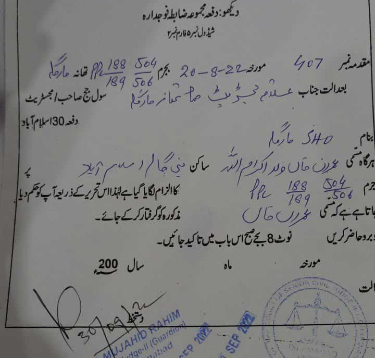 دیکھو: دفعہ مجموعہ ضابطہ فوجداری
شیڈول نمبر ۵ فارم نمبر ۲
مقدمہ نمبر 407 مورخہ 20-8-22 بجرم PPC 188/189 504/506 تھانہ مارگلہ
بعدالت جناب علاقہ مجسٹریٹ صاحب تھانہ مارگلہ سول جج صاحب / مجسٹریٹ
دفعہ 30 اسلام آباد
بنام SHO مارگلہ
ہرگاہ مسمی عمران خان ولد اکرام اللہ ساکن بنی گالہ اسلام آباد پر
جرم PPC 188/189 504/506 کا الزام لگایا گیا ہے لہٰذا اس تحریر کے ذریعہ آپ کو حکم دیا
جاتا ہے کہ مسمی عمران خان مذکورہ کو گرفتار کر کے جائے۔
وبرو حاضر کریں نوٹ 8 بجے صبح اس باب میں تاکید جانیں۔
مورخہ ماہ سال 200
30/09/22
MUJAHID RAHIM
Judge-II (Guardian)
SEP 2022